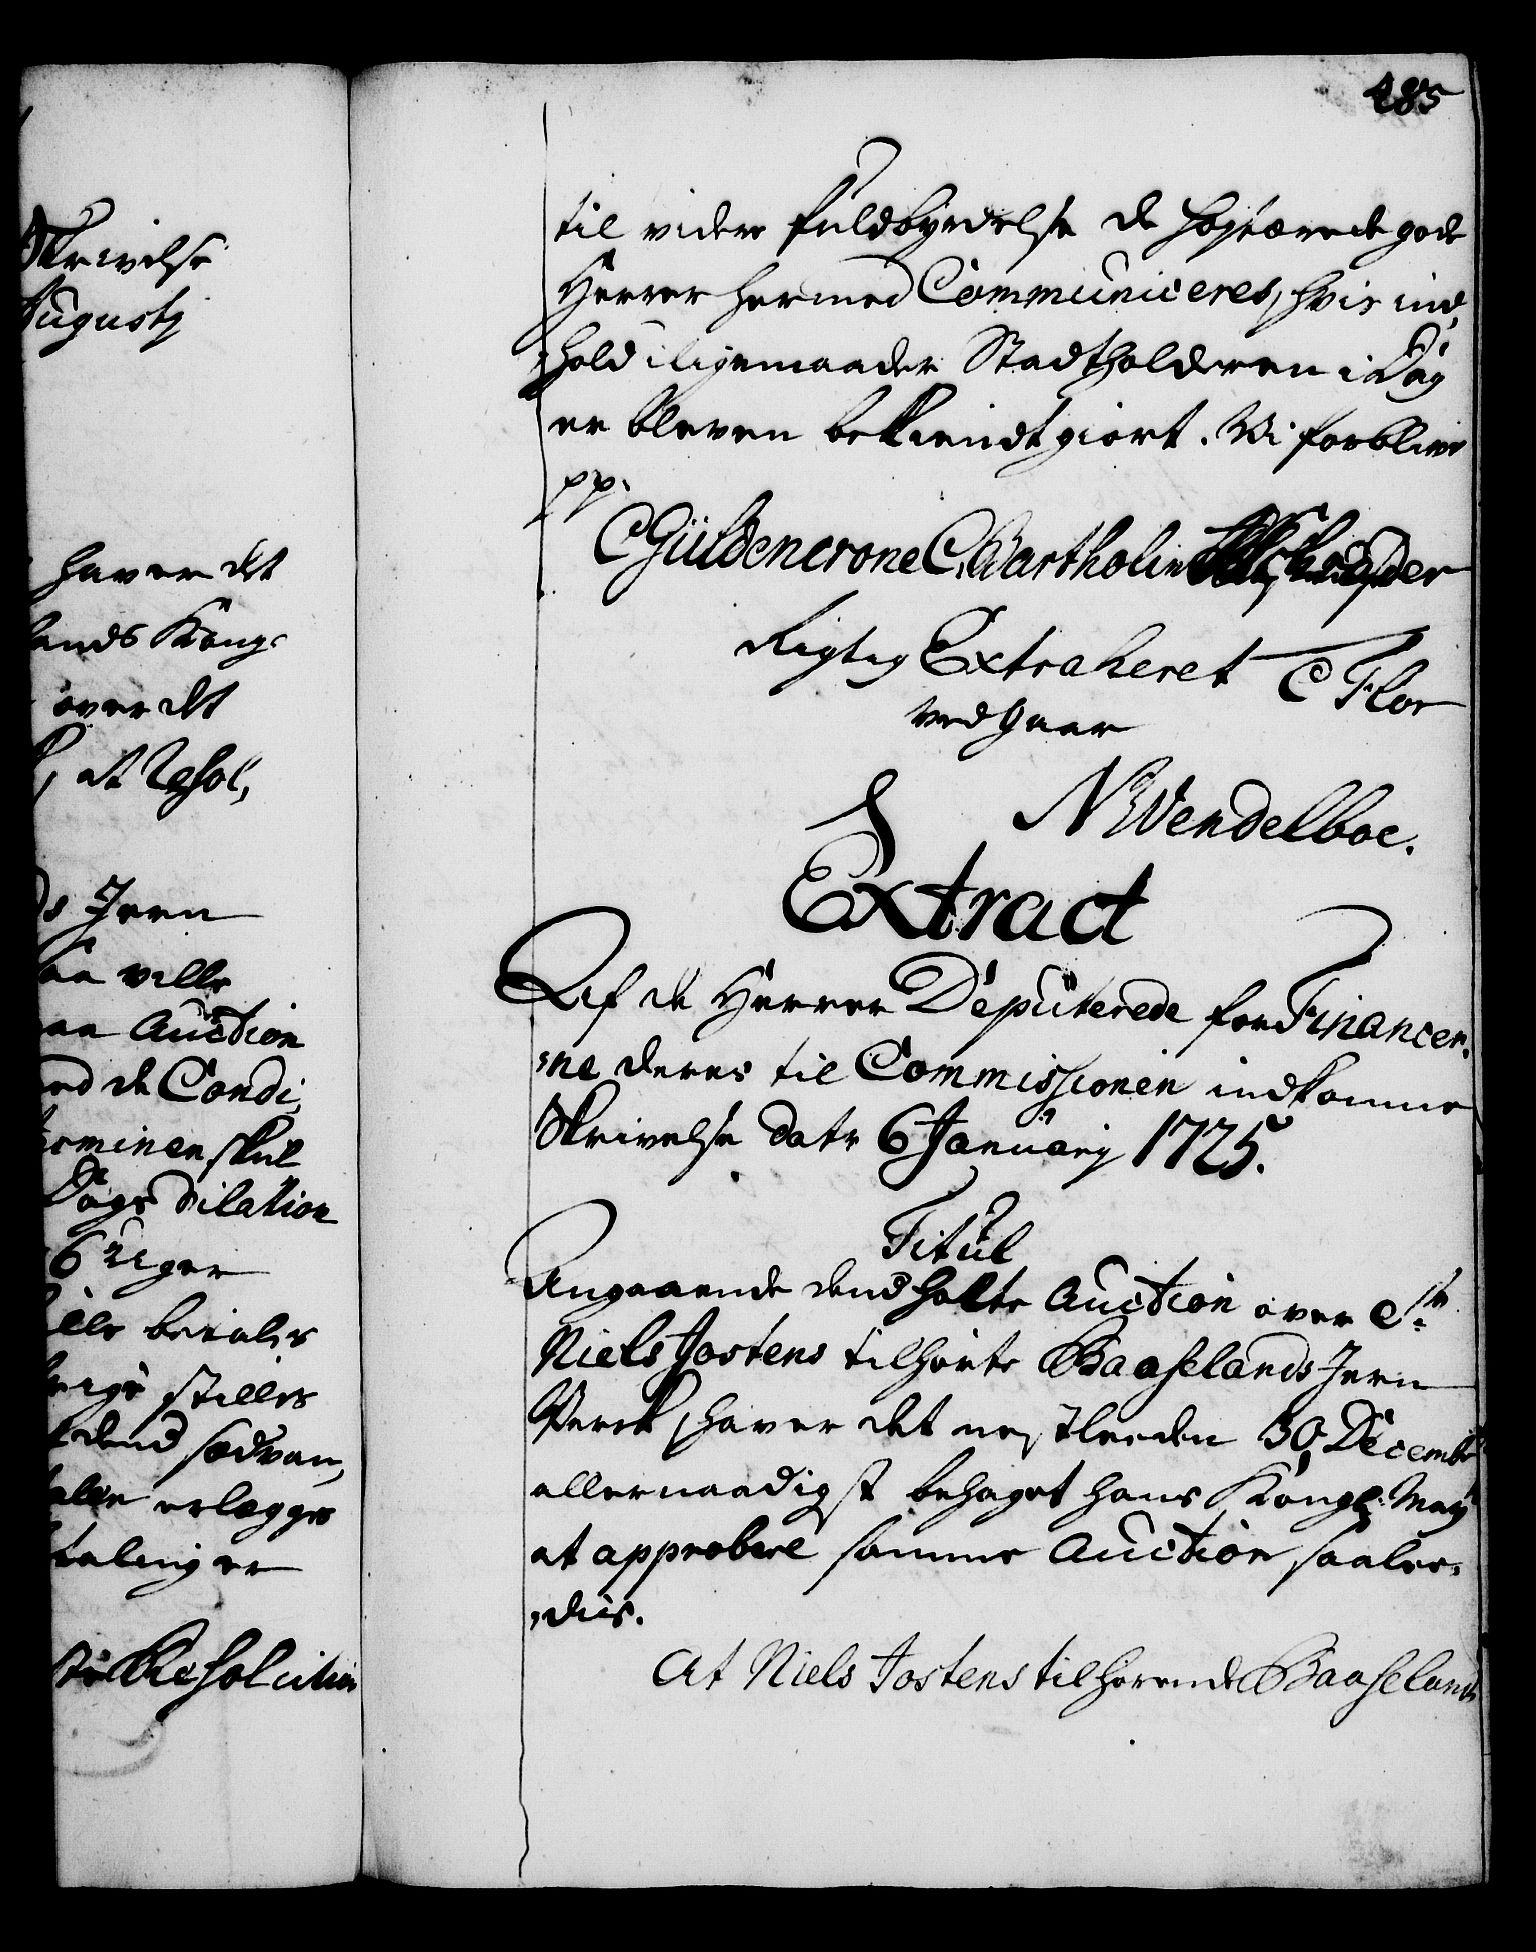 Skrivelse
Augustj
haver det
lands Kong:
over det
at Resol,
Jern
ville
Auction
de Condi,
skul
Dags dilation
6 Uger
betales
stilles
dend sædvan,
erlegges
Resolution
485
til videre fuldbyrdelse de høytærede gode
Herrer hermed Communiceres, hvis ind,
hold iligemaader Stadtholderen i Dag
er bleven bekiendtgiort. Vi forblive
pp.
C Güldencrone C. Bartholin
Rigtig Extraheret C Flor
vedgaar
N Wendelboe.
Extract
Af de Herrer Deputerede for Financer,
,ne deres til Commissionen indkomne
Skrivelse dat: 6 Januarij 1725.
Titul
Angaaende dend holte Auction over
Niels Jostens tilhørte Baaselands Jern
Verck, haver det nestleeden 30 Decembr
allernaadigst behaget hans Kongl: May
at approbere samme Auction saalee,
,diis.
At Niels Jostens tilhørende Baaselands